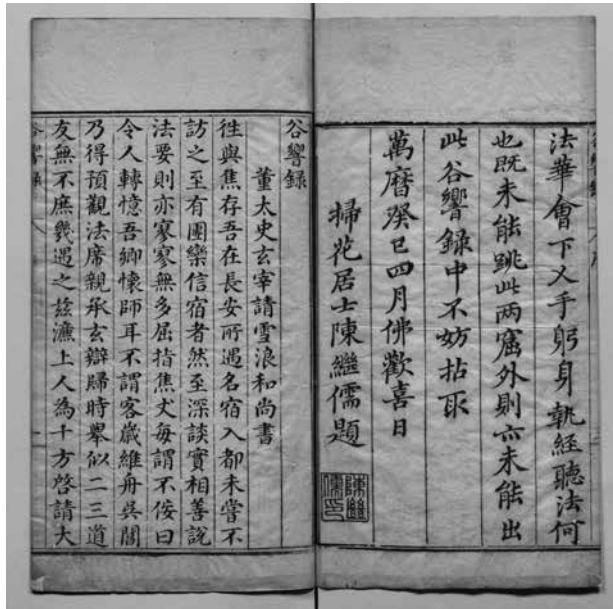 法華會下叉手躬身執經聽法何
也既未能跳此两窟外則亦未能出
此谷響録中不妨拈取
萬曆癸巳四月佛歡喜日
掃花居士陳繼儒題
陳繼
儒印
谷響録
董太史玄宰請雪浪和尚書
徃與焦存吾在長安所遇名宿入都未嘗不
訪之至有團欒信宿者然至深談實相善説
法要則亦寥寥無多屈指焦丈每謂不佞曰
令人轉憶吾鄉懷師耳不謂客歲維舟吳閶
乃得預觀法席親承玄辯歸時舉似二三道
友無不庶幾遇之兹濂上人為十方啓請大